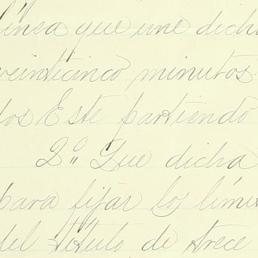 línea que une dicha
veinticinco minutos
dos Este partiendo
2º. Que dicha
para fijar los lími
del título de trece